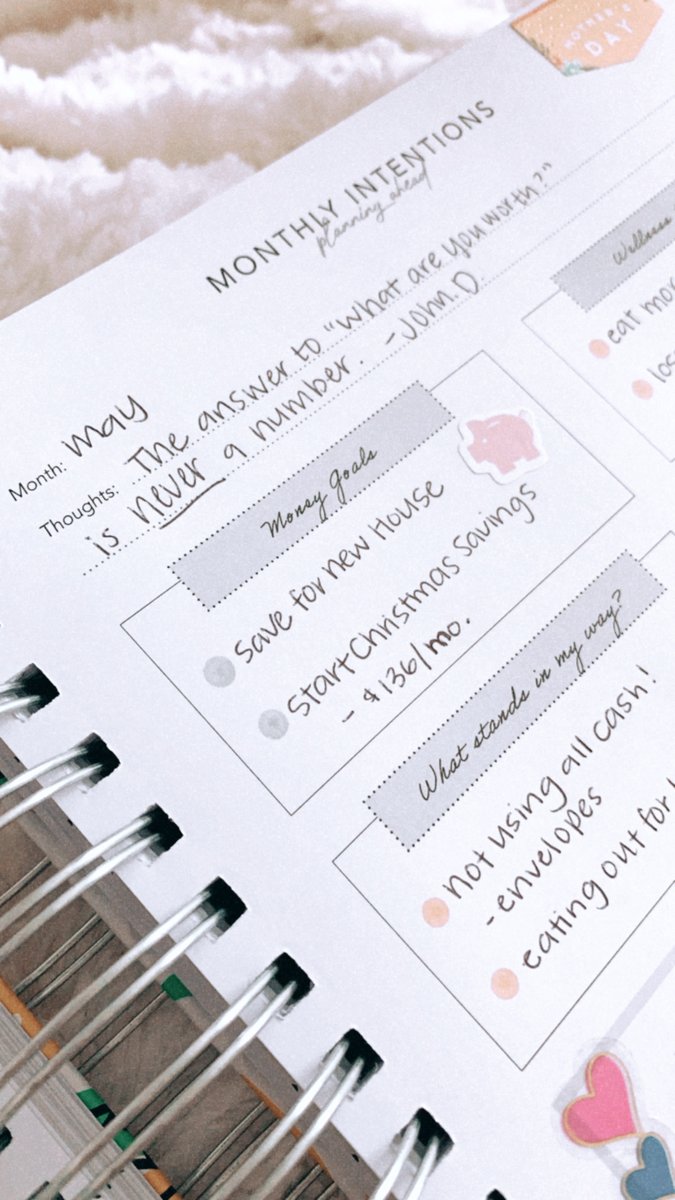 MOTHER'S
DAY
MONTHLY INTENTIONS
planning ahead
Month: May
Thoughts: The answer to "what are you worth?"
is never a number. -John.D
Money Goals
save for new House
Start Christmas Savings
- $136/mo.
Wellness
eat
What stands in my way?
not using all cash!
- envelopes
eating out for